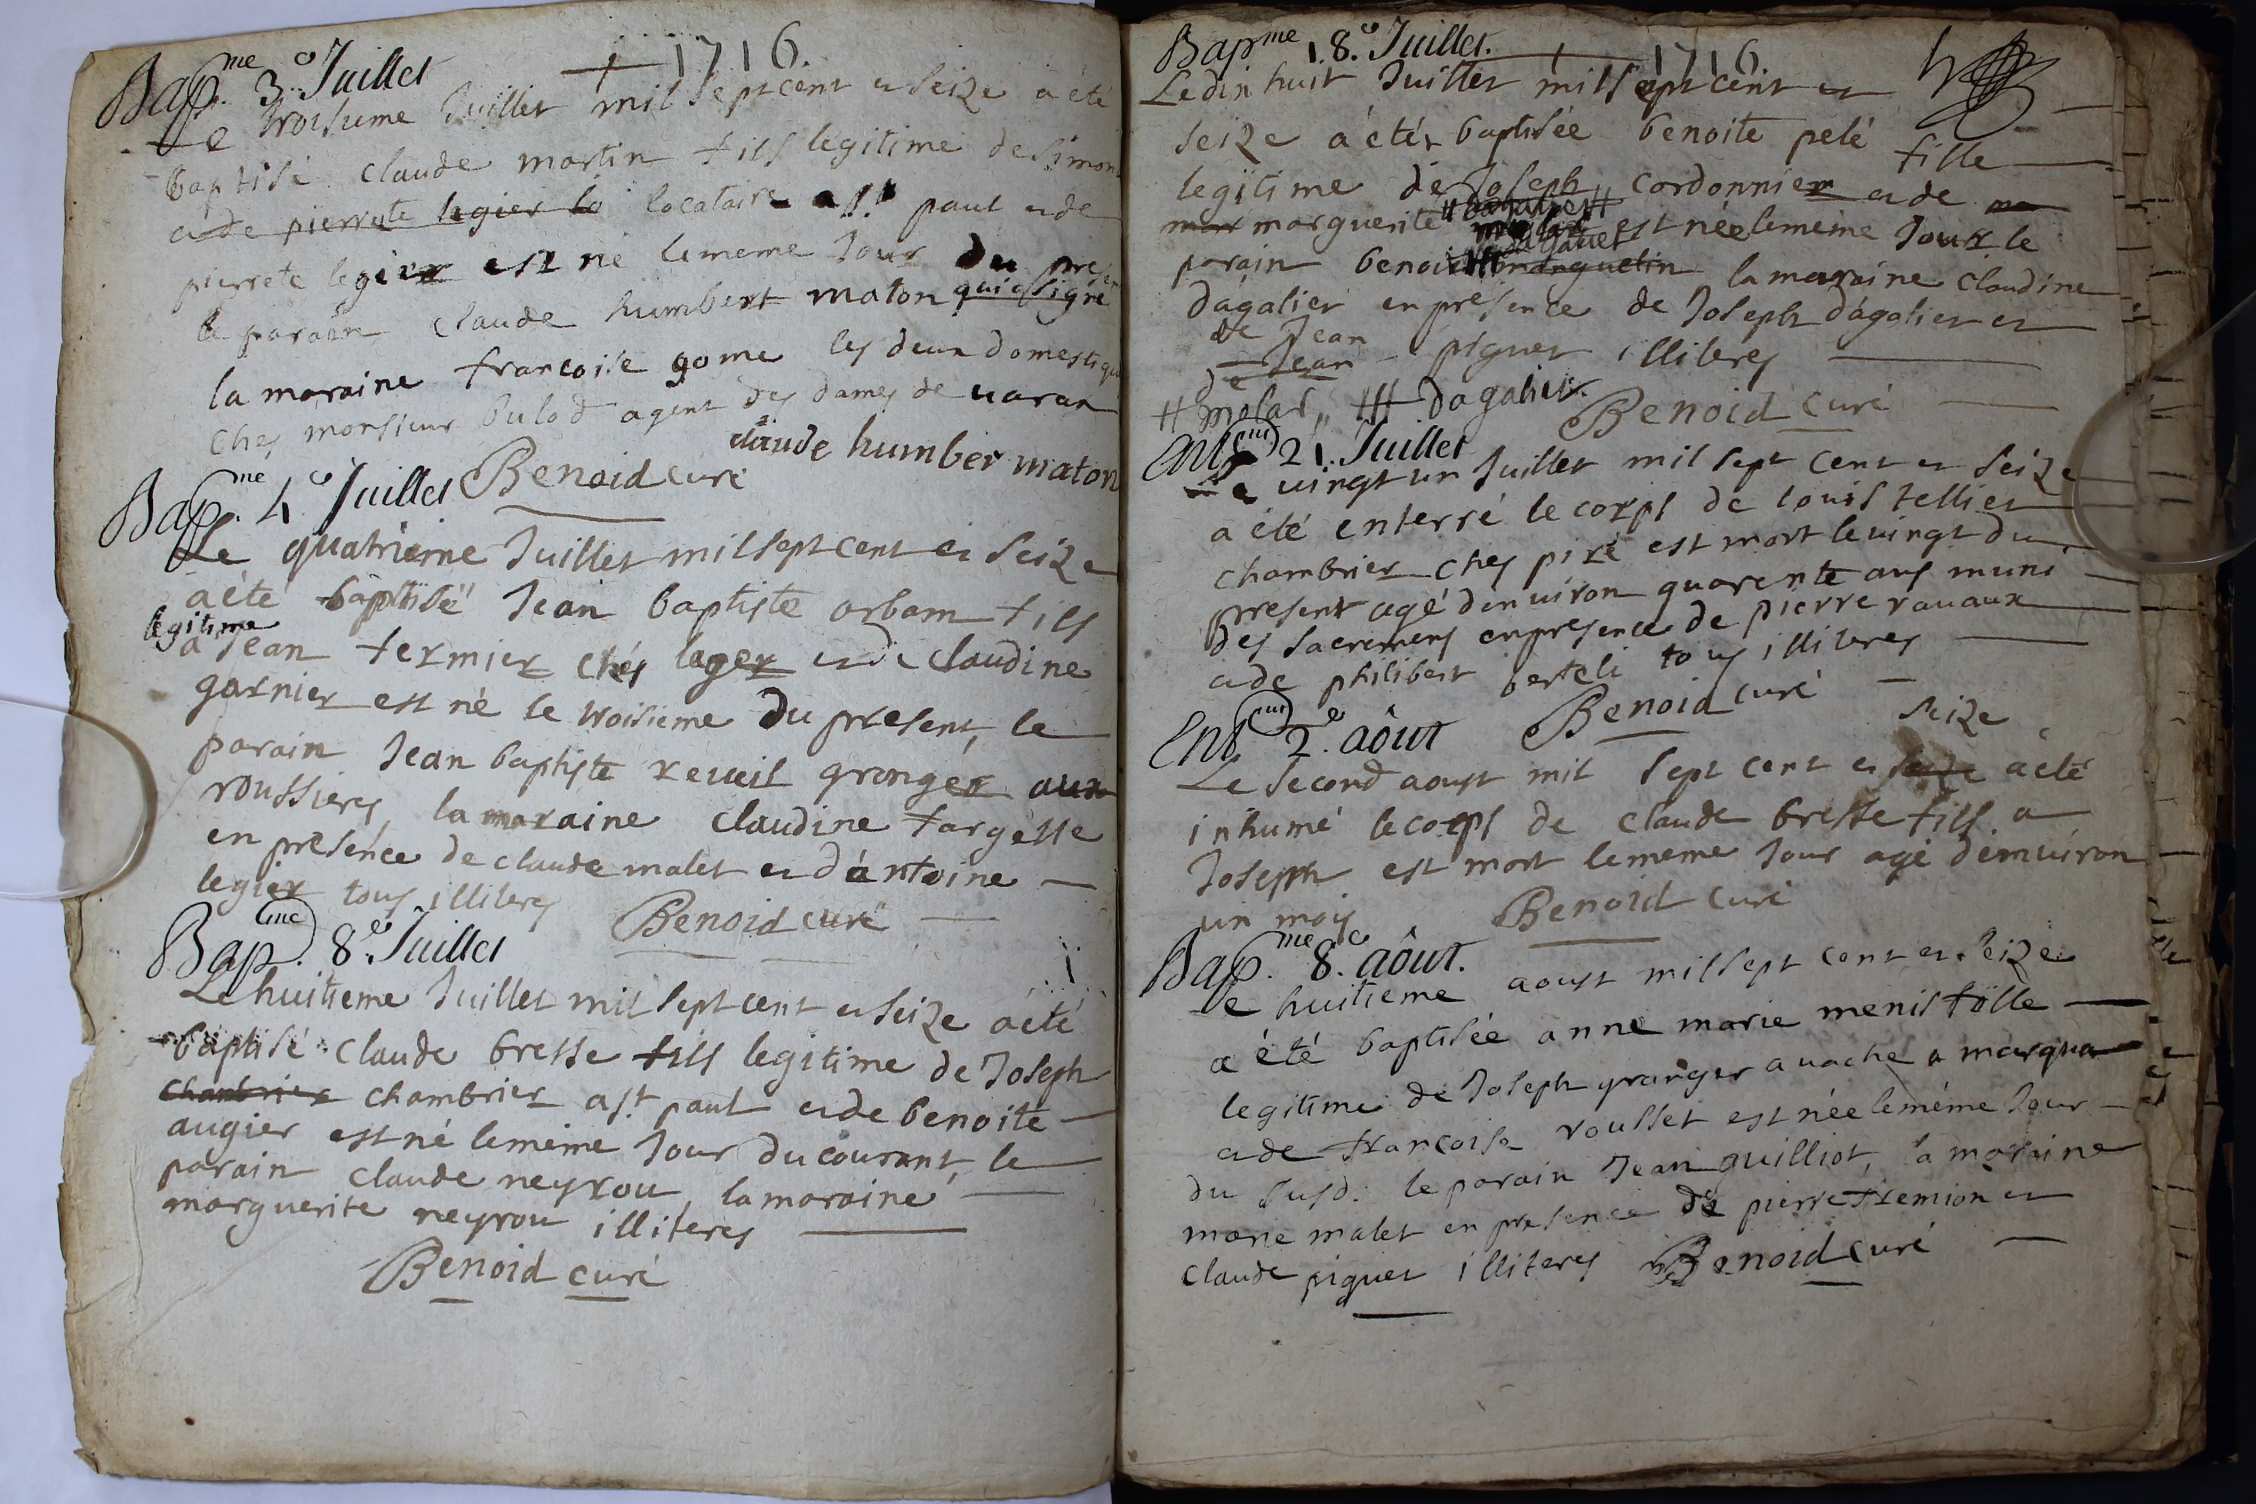 1716.
Bap.me 3.e Juillet
Le troisieme Juillet mil sept cent et seize a été
baptisé claude martin fils legitime de simon
et de pierrete legier locataire a st paul et de
pierrete legier est né le meme Jour du present
le parain claude humbert maton qui a signé
la maraine francoise gome les deux domestiqu
ches monsieur bulod agent des dames de varan
claude humber maton
Benoid curé
Bap.me 4.e Juillet
Le quatrieme Juillet mil sept cent et seize
a été baptisé Jean baptiste orbam fils
legitime
a Jean fermier chés lager et de claudine
garnier est né le troisieme du present, le
parain Jean baptiste reveil granger aux
roussieres, la maraine claudine fargesse
en presence de claude malet et d'antoine
legier tous illiteres
Benoid curé
Bap.me 8.e Juillet
Le huitieme Juillet mil sept cent et seize a été
baptisé claude bresse fils legitime de Joseph
chambrier chambrier a st paul et de benoite
augier est né le meme Jour du courant, le
parain claude neyrou, la maraine
marguerite neyrou illiteres
Benoid curé
1716.
Bap.me 18.e Juillet.
Le dix huit Juillet mil sept cent et
seize a été baptisée benoite pelé fille
legitime de Joseph cordonnier et de
marguerite est née le meme Jour le
parain benoit la maraine claudine
dagalier en presence de Joseph dagalier et
de Jean
de Jean piguet illiteres
# molar, ## dagalier.
Benoid curé
Ent 21. Juillet
Le vingt un Juillet mil sept cent et seize
a été enterré le corps de louis tellier
chambrier ches piré est mort le vingt du
present agé d'environ quarente ans muni
des sacremens en presence de pierre ravaux
et de philibert berteli tous illiteres
Benoid curé
Ent 2.e aôut
seize
Le second aoust mil sept cent et seize a été
inhumé le corps de claude bresse fils a
Joseph est mort le meme Jour agé d'environ
un mois
Benoid curé
Bap.me 8.e aôut.
Le huitieme aoust mil sept cent et seize
a été baptisée anne marie menis fille
legitime de Joseph granger a vache a marqua
et de francoise rousset est née le méme Jour
du susd. le parain Jean guilliot, la maraine
marie malet en presence de pierre fremion et
claude piguet illiteres
Benoid curé